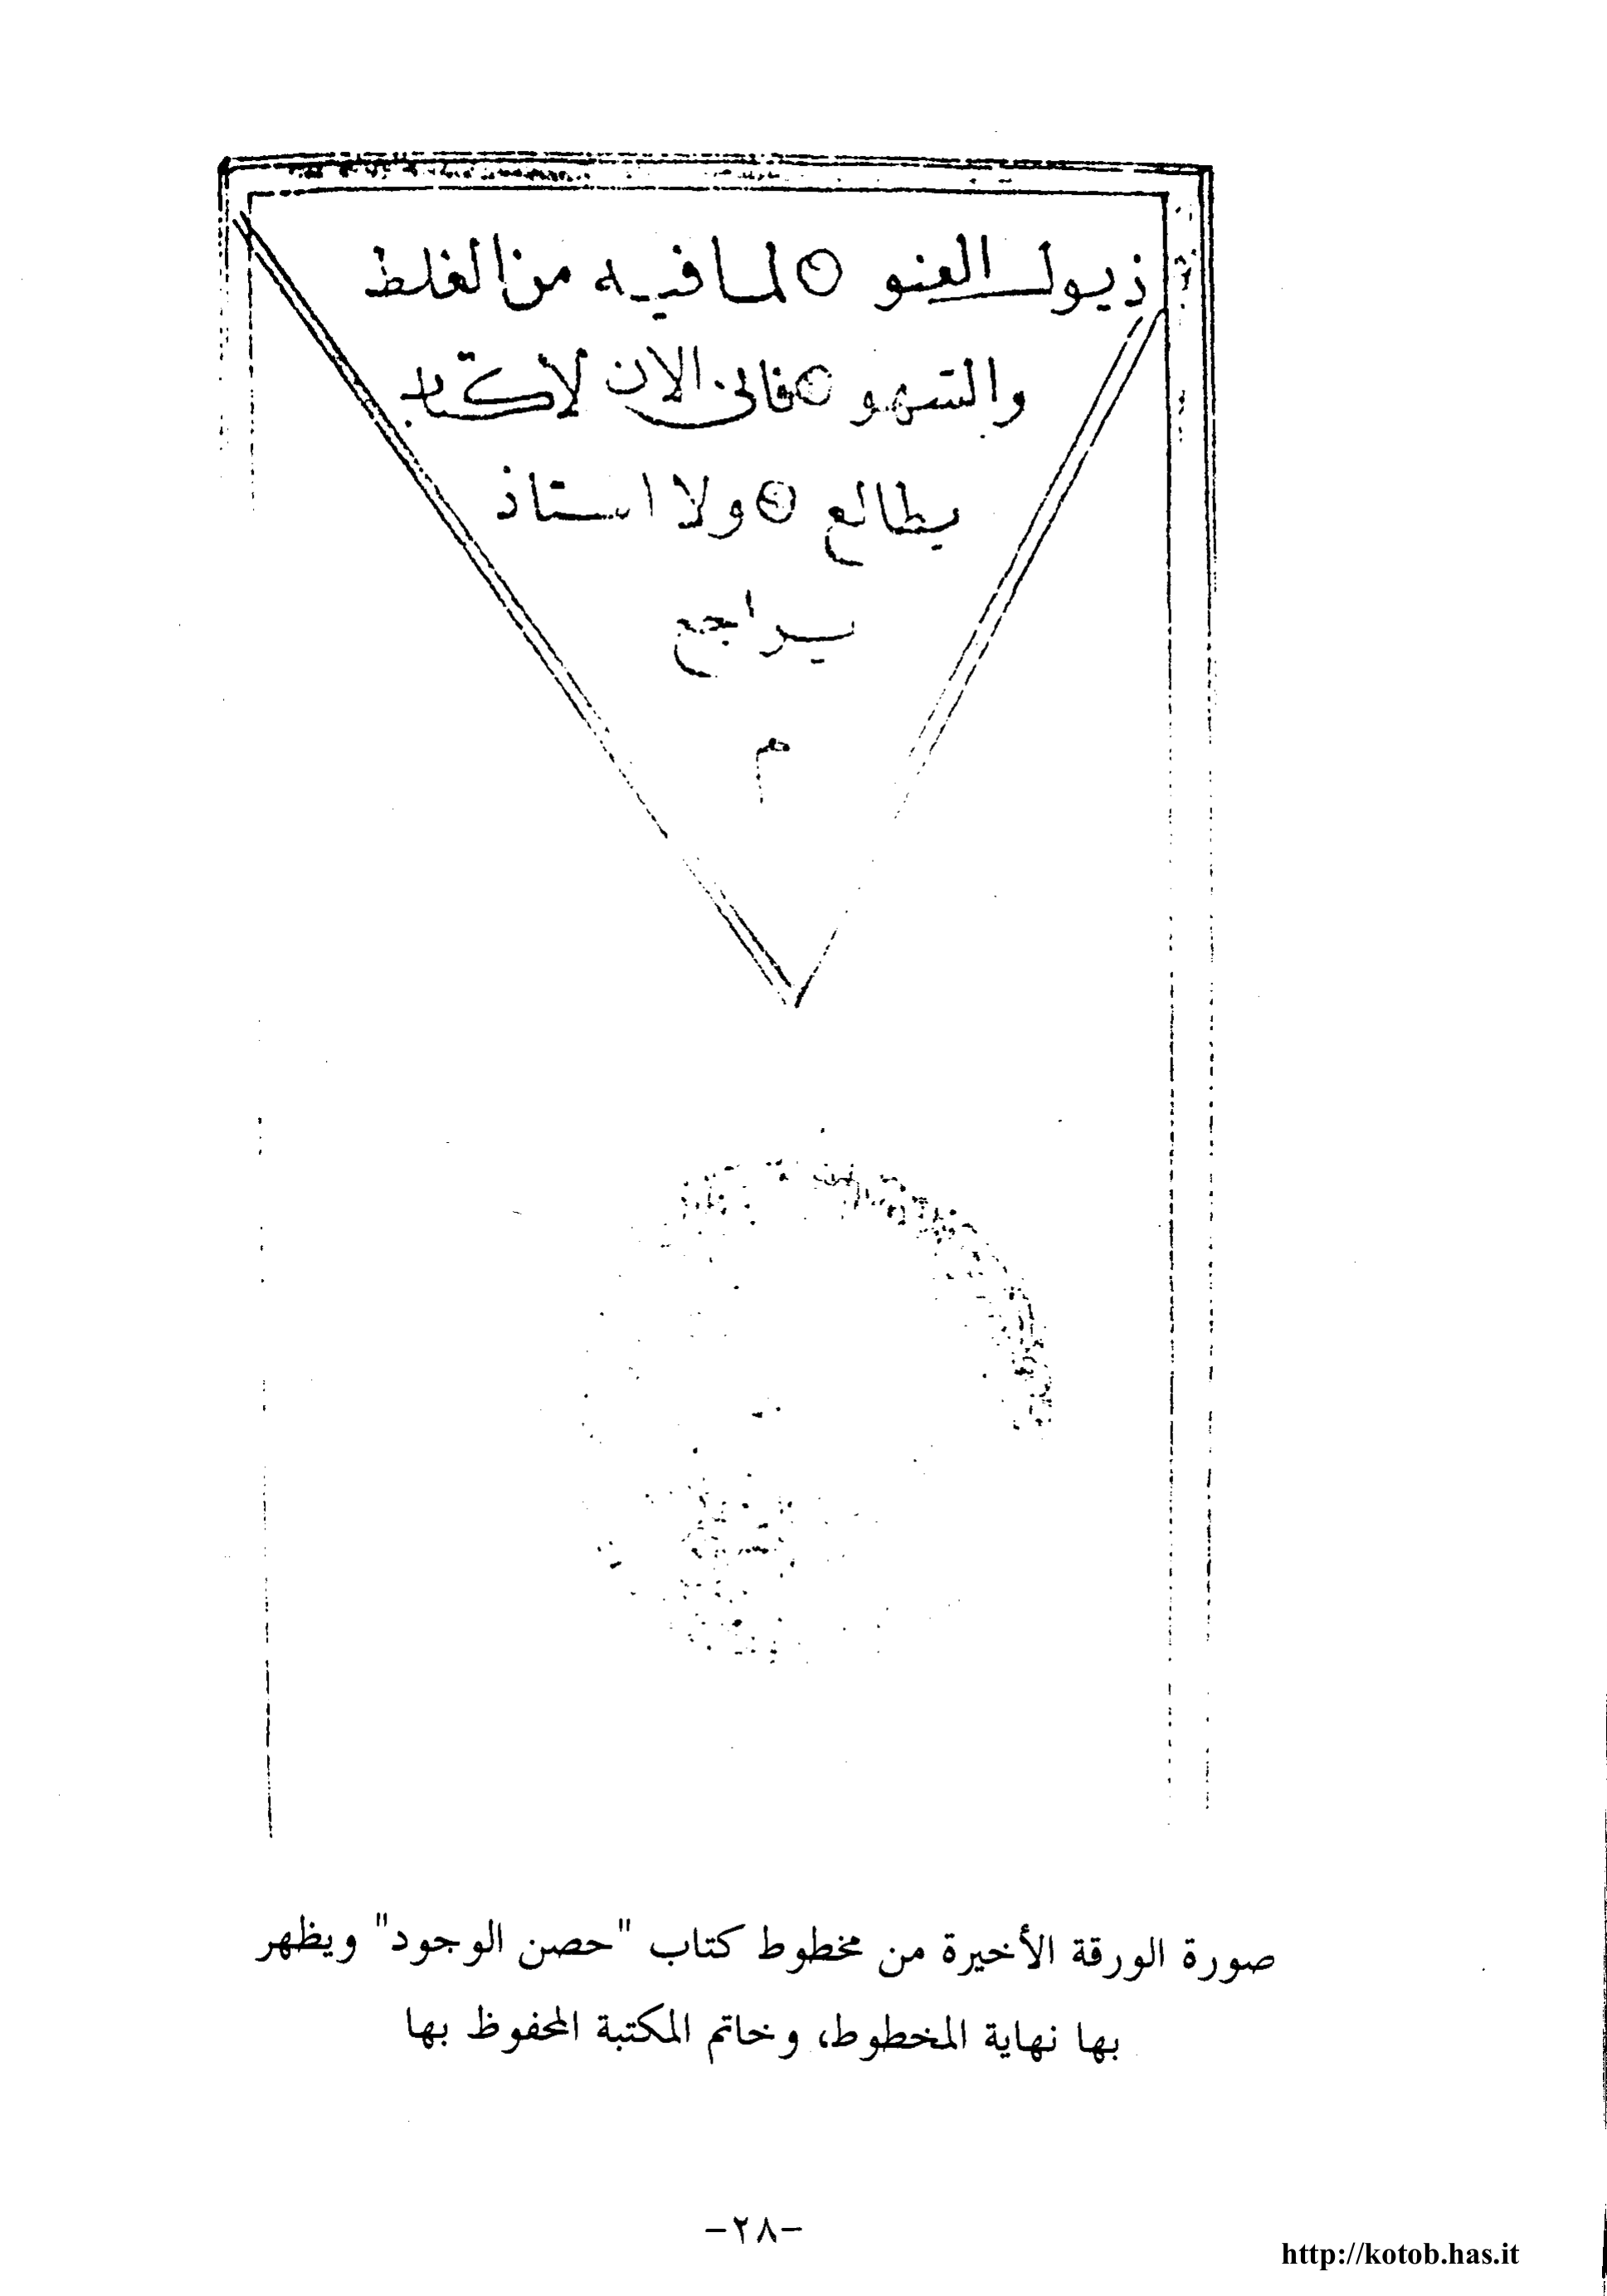 ذيول العفو لما فيه من الغلط
والسهو فانى الان لا كتاب
يطالع ولا استاذ
يراجع
م
صورة الورقة الأخيرة من مخطوط كتاب "حصن الوجود" ويظهر
بها نهاية المخطوط، وخاتم المكتبة المحفوظ بها
-٢٨-
http://kotob.has.it